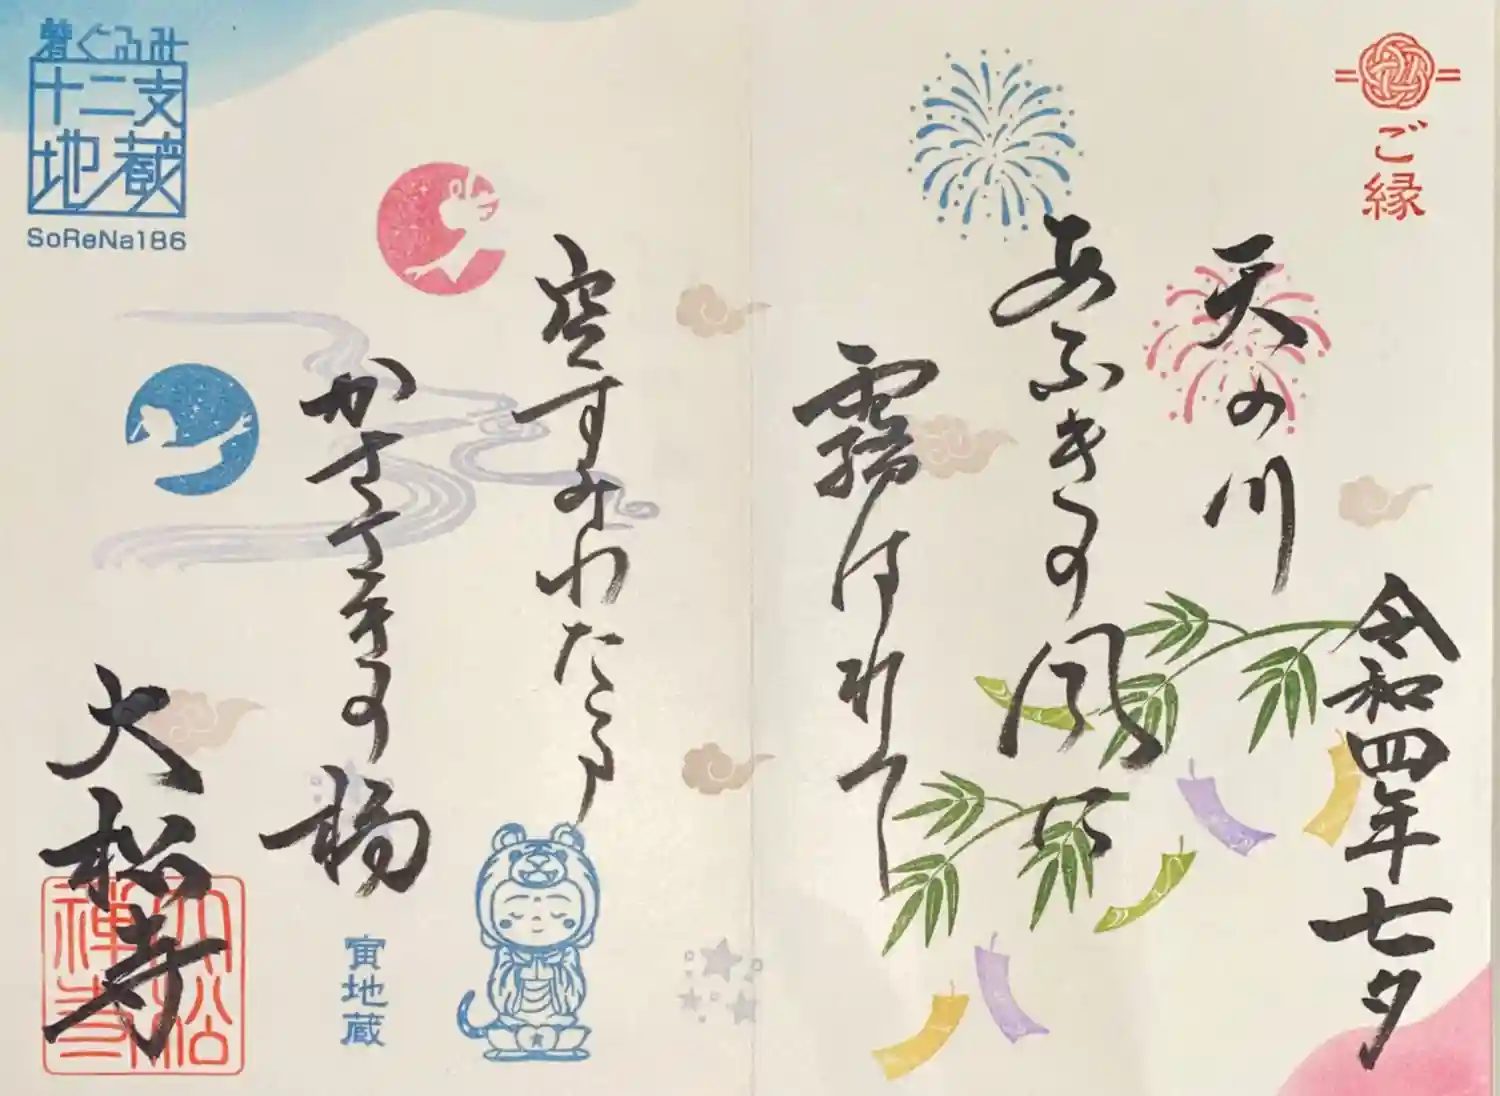 ご縁
令和四年七夕
天の川
あふきの風に
霧はれて
空すみわたる
かさゝきの橋
大松寺
大松
禅寺
寅地蔵
着ぐるみ
十二支
地蔵
SoReNa186